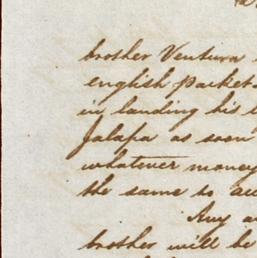 brother Ventura
english packets
in landing his
Jalapa as soon
whatever money
the same to
Any
brother will be